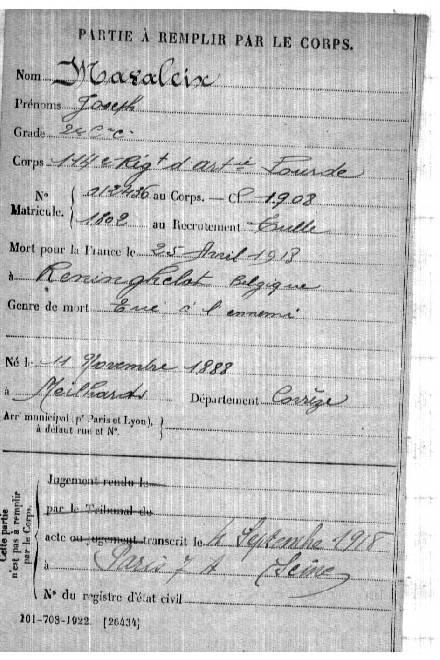 PARTIE À REMPLIR PAR LE CORPS.
Nom Masaleix
Prénoms Joseph
Grade 2e C. C.
Corps 114e Régt d'artie Lourde
N° 212436 au Corps. — Cl 1908
Matricule. 1802 au Recrutement Tulle
Mort pour la France le 25 Avril 1918
à Reninghelst Belgique
Genre de mort Tué à l'ennemi
Né le 11 Novembre 1888
à Meilhards Département Corrèze
Arrt municipal (pr Paris et Lyon),
à défaut rue et N°.
Cette partie
n'est pas à remplir
par le Corps.
Jugement rendu le
par le Tribunal du
acte ou jugement transcrit le 4 Septembre 1918
à Paris 7 A (Seine)
N° du registre d'état civil
101-708-1922. [26434]